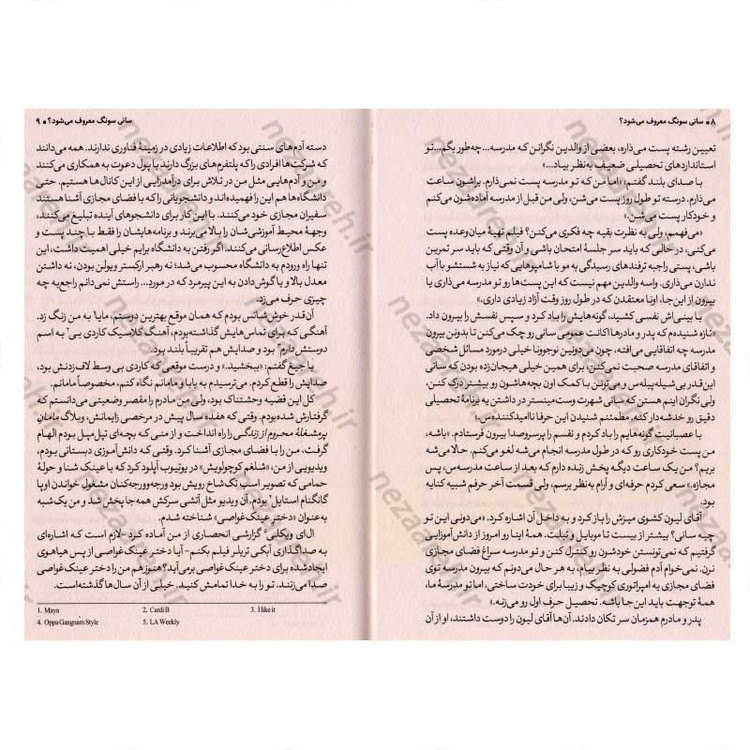 ۸ ● سانی سونگ معروف می‌شود؟
تعیین رشته پست می‌ذاره، بعضی از والدین نگران‌ن که مدرسه... چه‌طور بگم... تو
استانداردهای تحصیلی ضعیف به‌نظر بیاد...»
با صدای بلند گفتم: «اما من که تو مدرسه پست نمی‌ذارم. براشون ساعت
می‌ذارم. درسته تو طول روز پست می‌شن، ولی من قبل از مدرسه آماده‌شون می‌کنم
و خودکار پست می‌شن.»
«می‌فهمم، ولی به نظرت بقیه چه فکری می‌کنن؟ فیلم تهیهٔ میان‌وعده پست
می‌کنی، در حالی که باید سر جلسهٔ امتحان باشی و آن وقتی که باید سر تمرین
باشی، پستی راجع‌به ترفندهای رسیدگی به مو با شامپوهایی که نیاز به شستشو با آب
ندارن می‌ذاری. واسه والدین مهم نیست که این پست‌ها رو تو مدرسه می‌ذاری یا
بیرون از این‌جا، اونا معتقدن که در طول روز وقت آزاد زیادی داری.»
با بینی‌اش نفسی کشید، گونه‌هایش را باد کرد و سپس نفسش را بیرون داد.
«تازه شنیده‌م که پدر و مادرها اکانت عمومی سانی رو چک می‌کنن تا بدونن بیرون
مدرسه چه اتفاقایی می‌افته، چون می‌دونین نوجوونا خیلی درمورد مسائل شخصی
و اتفاقای مدرسه صحبت نمی‌کنن، برای همین خیلی هیجان‌زده بودن که سانی
این‌قدر بی‌شیله‌پیله‌س و می‌تونن با کمک اون بچه‌هاشون رو بیشتر درک کنن،
ولی نگران اینم هستن که سانی شهرت و‌است مهم‌تر در داشتن یه برنامهٔ تحصیلی
دقیق رو خدشه‌دار کنه. مطمئنم شنیدن این حرفا ناامیدکننده‌س.»
با عصبانیت گونه‌هایم را باد کردم و نفسم را پرسروصدا بیرون فرستادم. «باشه،
من پست خودکاری رو که در طول مدرسه انجام می‌شه لغو می‌کنم. حالا می‌شه
بریم؟ من یک ساعت دیگه پخش زنده دارم که بعد از ساعت مدرسه‌س، پس
مجازه.» سعی کردم حرفه‌ای و آرام به‌نظر برسم، ولی قسمت آخر حرفم شبیه کنایه
بود.
آقای لیون کشوی میزش را باز کرد و به داخل آن اشاره کرد. «می‌دونی این تو
چیه سانی؟ بیشتر از بیست تا موبایل و تبلت. همهٔ اینا رو امروز از دانش‌آموزایی
گرفتیم که نمی‌تونستن خودشون رو کنترل کنن و تو مدرسه سراغ فضای مجازی
نرن. نمی‌خوام آدم فضولی به نظر بیام، به هر حال می‌دونم که بیرون مدرسه توی
فضای مجازی یه امپراتوری کوچیک و زیبا برای خودت ساختی، اما تو مدرسهٔ ما،
همهٔ توجهت باید این‌جا باشه. تحصیل حرف اول رو می‌زنه.»
پدر و مادرم همزمان سر تکان دادند. آن‌ها آقای لیون را دوست داشتند، او از آن
سانی سونگ معروف می‌شود؟ ● ۹
دسته آدم‌های سنتی بود که اطلاعات زیادی در زمینهٔ فناوری ندارند. همه می‌دانند
که شرکت‌ها افرادی را که پلتفرم‌های بزرگ دارند با پول دعوت به همکاری می‌کنند
و من و آدم‌هایی مثل من در تلاش برای درآمدزایی از این کانال‌ها هستیم. حتی
دانشگاه‌ها هم این را فهمیده‌اند و دانشجویانی را که با فضای مجازی آشنا هستند
سفیران مجازی خود می‌کنند. با این کار برای دانشجوهای آینده تبلیغ می‌کنند،
وجههٔ محیط آموزشی‌شان را بالا می‌برند و برنامه‌هایشان را فقط با چند پست و
عکس اطلاع‌رسانی می‌کنند. اگر رفتن به دانشگاه برایم خیلی اهمیت داشت، این
تنها راه ورودم به دانشگاه محسوب می‌شد؛ نه رهبر ارکستر ویولن بودن، نه داشتن
معدل بالا و یا گوش‌دادن به این پیرمرد که در مورد... راستش نمی‌دانم راجع‌به چه
چیزی حرف می‌زد.
آن‌قدر خوش‌شانس بودم که همان موقع بهترین دوستم، مایا به من زنگ زد.
آهنگی که برای تماس‌هایش گذاشته‌بودم، آهنگ کلاسیک کاردی بی به اسم
دوستش دارم بود و صدایش هم تقریباً بلند بود.
با جیغ گفتم: «ببخشید.» و درست موقعی که کاردی بی وسط لاف‌زدنش بود،
صدایش را قطع کردم. می‌ترسیدم به بابا و مامانم نگاه کنم، مخصوصاً مامانم.
کل این قضیه وحشتناک بود، ولی من مادرم را مقصر وضعیتی می‌دانستم که
گرفتارش شده‌بودم. وقتی که هفده سال پیش در مرخصی زایمانش، وبلاگ مامانِ
پرمشغلهٔ محروم از زندگی را راه انداخت و از منی که بچه‌ای تپل‌مپل بودم الهام
گرفت، من را با فضای مجازی آشنا کرد. وقتی که دانش‌آموزی دبستانی بودم،
ویدیویی از من، «شلغم کوچولویش» در یوتیوب آپلود کرد که با عینک شنا و حولهٔ
حمامی که تصویر اسب تک‌شاخ رویش بود ورجه‌وورجه‌کنان مشغول خواندن اوپا
گانگنام استایل بودم. آن ویدیو مثل آتشی سرکش همه‌جا پخش شد و من یک‌شبه
به‌عنوان «دختر عینک غواصی» شناخته شدم.
ال‌ای ویکلی گزارشی انحصاری از من آماده کرد -لازم است که اشاره‌ای
به صداگذاری آبکی تریلر فیلم بکنم- آیا دختر عینک غواصی از پس هیاهوی
ایجادشده برای دختر عینک غواصی برمی‌آید؟ هنوز هم من را دختر عینک غواصی
صدا می‌زنند. تو را به خدا تمامش کنید، خیلی از آن سال‌ها گذشته‌است.
1. Maya 2. Cardi B 3. I like it
4. Oppa Gangnam Style 5. LA Weekly
nezaareh.ir